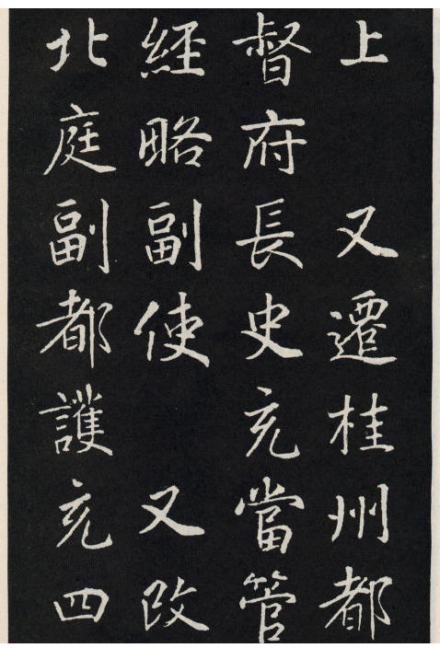 上 又遷桂州都
督府長史充當管
經略副使 又改
北庭副都護充四